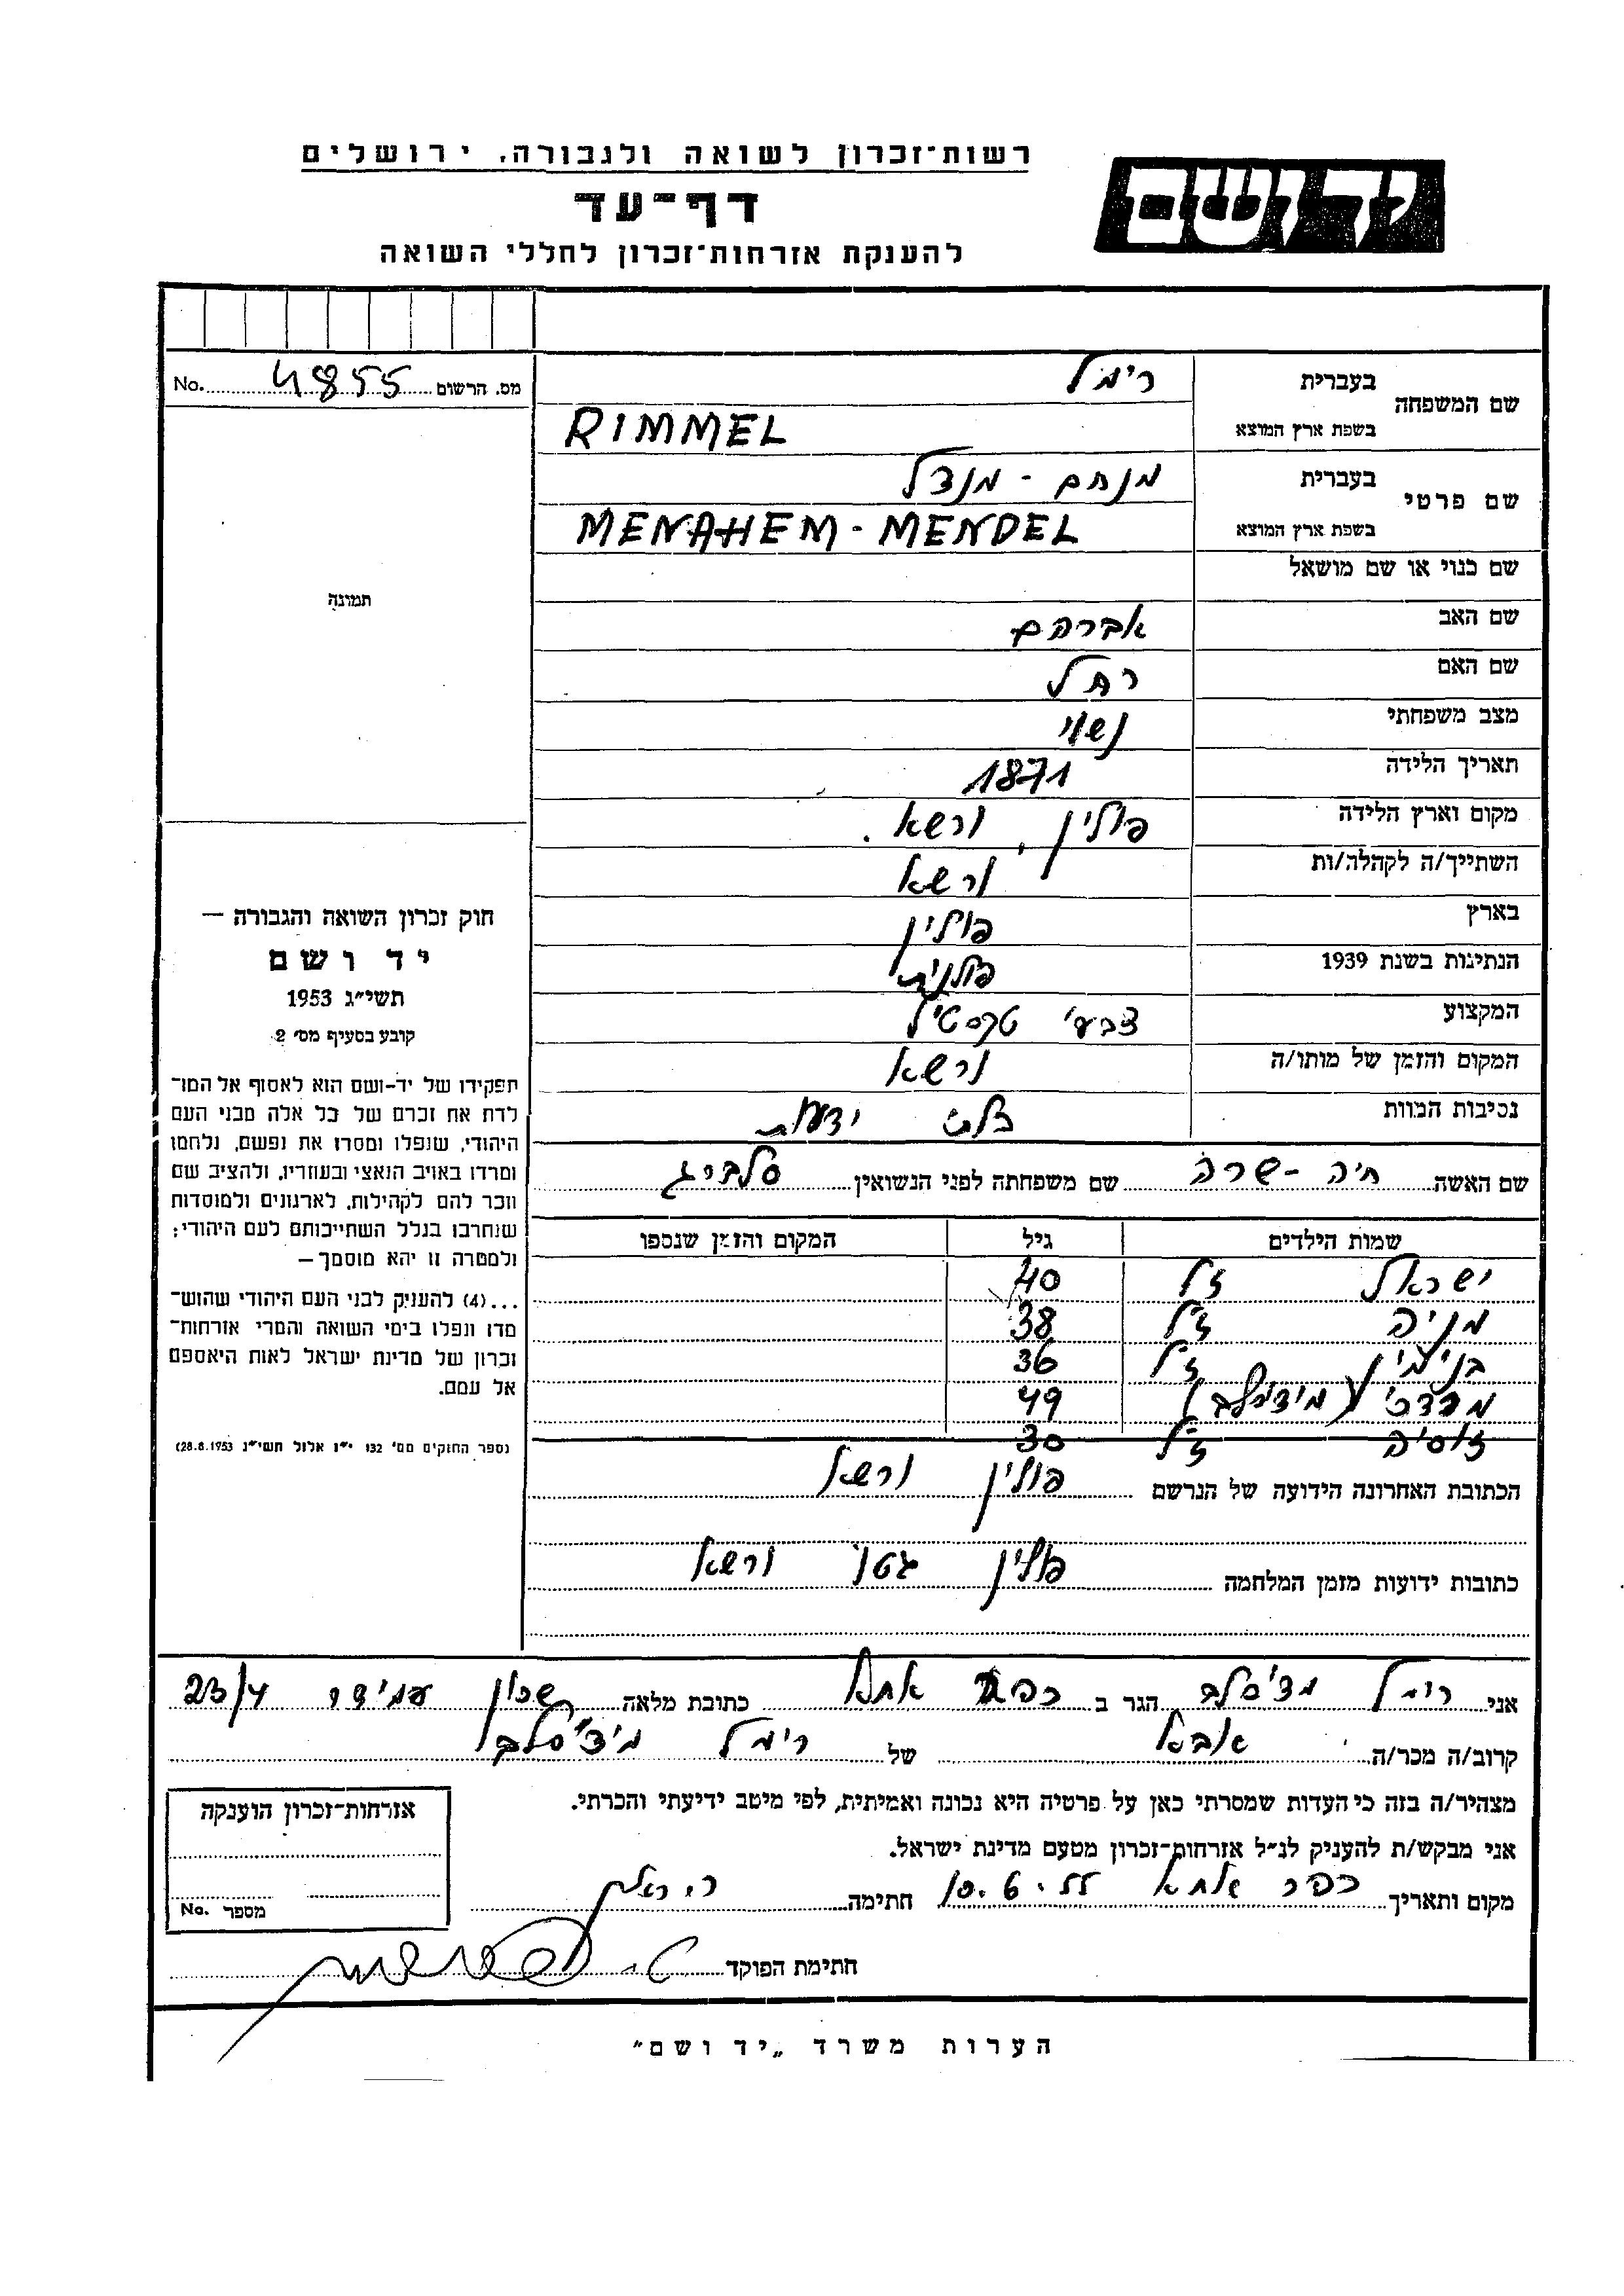 רשות־זכרון לשואה ולגבורה, ירושלים
יד ושם
דף־עד
להענקת אזרחות־זכרון לחללי השואה
שם המשפחה בעברית רימל
מס. הרשום 4855 No.
בשפת ארץ המוצא RIMMEL
שם פרטי בעברית מנחם - מנדל
בשפת ארץ המוצא MENAHEM - MENDEL
שם כנוי או שם מושאל
תמונה
שם האב אברהם
שם האם רחל
מצב משפחתי נשוי
תאריך הלידה 1871
מקום וארץ הלידה פולין, ורשא.
השתייך/ה לקהלה/ות ורשא
בארץ פולין
הנתינות בשנת 1939 פולנית
המקצוע צבעי טקסטיל
המקום והזמן של מותו/ה ורשא
נסיבות המוות בלתי ידועות
חוק זכרון השואה והגבורה —
יד ושם
תשי״ג 1953
קובע בסעיף מס׳ 2:
תפקידו של יד-ושם הוא לאסוף אל המו־
לדת את זכרם של כל אלה מבני העם
היהודי, שנפלו ומסרו את נפשם, נלחמו
ומרדו באויב הנאצי ובעוזריו, ולהציב שם
וזכר להם לקהילות, לארגונים ולמוסדות
שנחרבו בגלל השתייכותם לעם היהודי;
ולמטרה זו יהא מוסמך —
...(4) להעניק לבני העם היהודי שהוש־
מדו ונפלו בימי השואה והמרי אזרחות־
זכרון של מדינת ישראל לאות היאספם
אל עמם.
(ספר החוקים מס׳ 132 י״ז אלול תשי״ג 28.8.1953)
שם האשה חיה - שרה שם משפחתה לפני הנשואין סלביג
שמות הילדים גיל המקום והזמן שנספו
ישראל ז״ל 40
מניה ז״ל 38
בנימין ז״ל 36
מרדכי 49
זוסיה ז״ל 30
הכתובת האחרונה הידועה של הנרשם פולין ורשא
כתובות ידועות מזמן המלחמה פולין גטו ורשא
אני רימל מצ׳סלב הגר ב כפר אתא כתובת מלאה שכון עמידר 23/4
קרוב/ה מכר/ה אבא של רימל מיצ׳סלב
מצהיר/ה בזה כי העדות שמסרתי כאן על פרטיה היא נכונה ואמיתית, לפי מיטב ידיעתי והכרתי.
אני מבקש/ת להעניק לנ״ל אזרחות־זכרון מטעם מדינת ישראל.
מקום ותאריך כפר אתא 10.6.55 חתימה
חתימת הפוקד
אזרחות־זכרון הוענקה
מספר No.
הערות משרד „יד ושם״